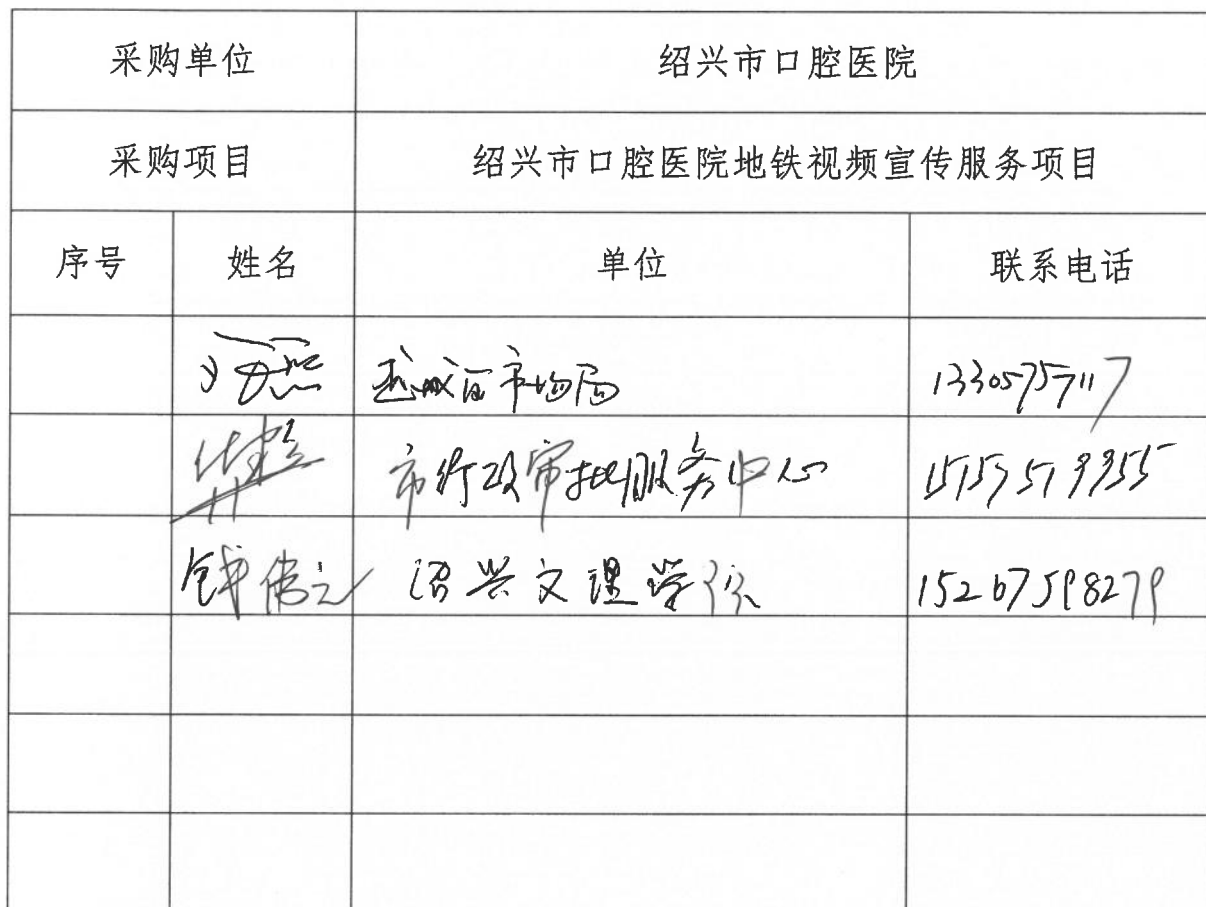 采购单位 绍兴市口腔医院
采购项目 绍兴市口腔医院地铁视频宣传服务项目
序号 姓名 单位 联系电话
越城区市场局 13305757117
市行政审批服务中心
钱伟 绍兴文理学院 15267598279